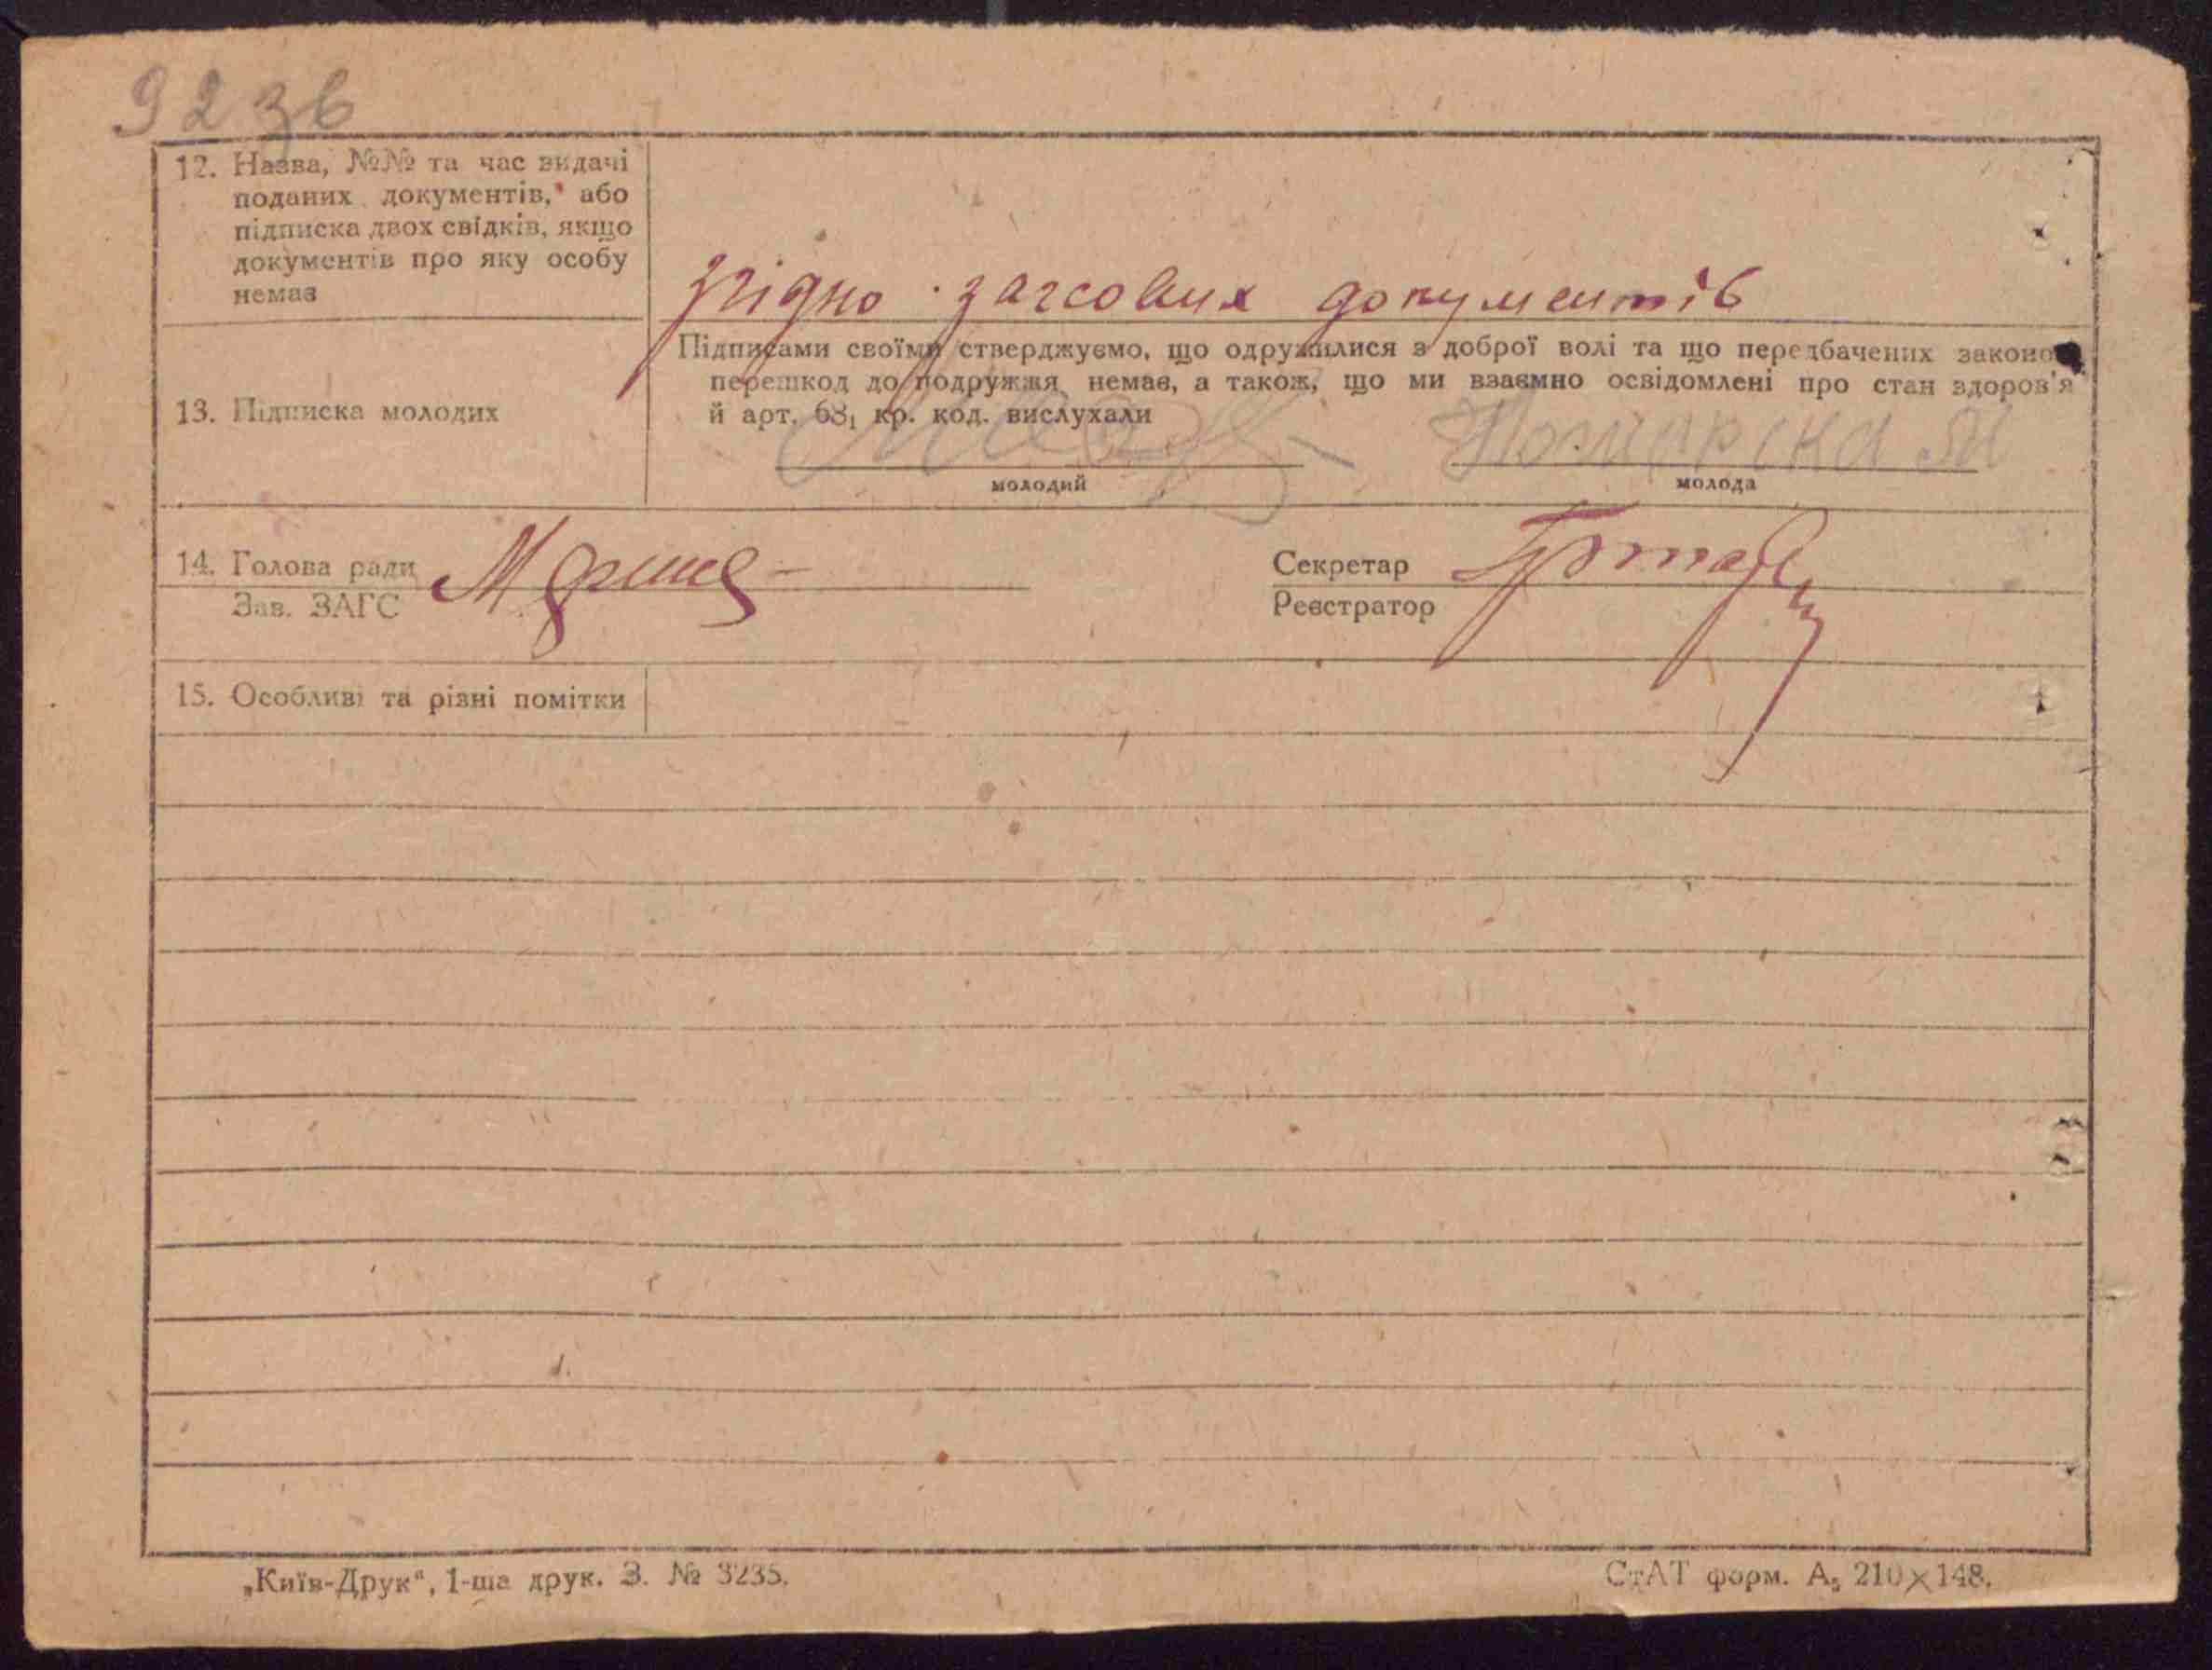 92 зв
12. Назва, №№ та час видачі
поданих документів, або
підписка двох свідків, якщо
документів про яку особу
немає
згідно загсових документів
13. Підписка молодих
Підписами своїми стверджуємо, що одружилися з доброї волі та що передбачених законом
перешкод до подружжя немає, а також, що ми взаємно освідомлені про стан здоров'я
й арт. 68₁ кр. код. вислухали
молодий
молода
14. Голова ради
Зав. ЗАГС
Секретар
Реєстратор
15. Особливі та різні помітки
„Київ-Друк“, 1-ша друк. З. № 3235.
СтАТ форм. А₅ 210×148.